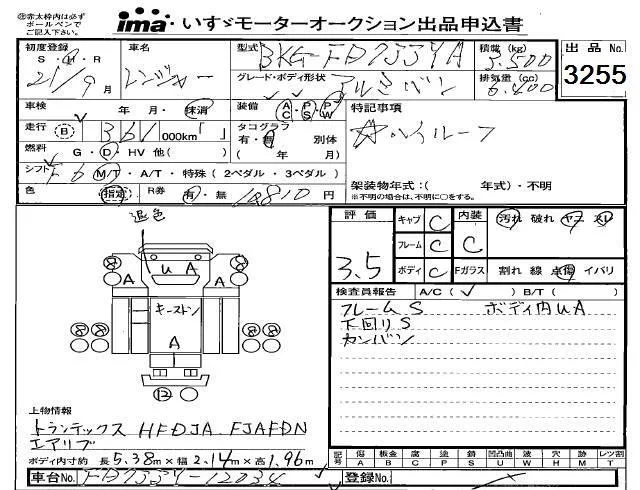 ㊟赤太枠内は必ず
ボールペンで
ご記入下さい。
ima いすゞモーターオークション出品申込書
初度登録 S・H・R
21/9月
車名
レンジャー
型式
BKG-FD7JJYA
積載 (kg)
3.500
出品 No.
3255
グレード・ボディ形状
アルミバン
排気量 (cc)
6.400
車検 年・月・抹消
装備 AC・PS・PW
特記事項
☆ハイルーフ
走行 B 361,000km「 」
タコグラフ
有・無 別体
( 年 月)
燃料 G・D・HV 他( )
シフト F6 M/T・A/T・特殊(2ペダル・3ペダル)
色 指定
R券 有・無 10810円
架装物年式:( 年式)・不明
※不明の場合は、不明に○をする。
退色
評価
3.5
キャブ C
フレーム C
ボディ C
内装
C
Fガラス
汚れ 破れ ヤニ スレ
割れ 線 点傷 イバリ
U A
A A
キーストン
A
⑧ ⑧
⑧ ⑧
⑫
検査員報告 A/C( ✓ ) B/T( )
フレーム S ボディ内UA
下回り S
カンバン
上物情報
トランテックス HFDJA FJAFDN
エアリブ
ボディ内寸約 長 5.38m×幅 2.14m×高 1.96m
記号 傷 A 板金 B 腐 C 塗 P 錆 S 凹凸曲 U 波 W 穴 H 跡 M レツ割 T
車台No. FD7JJY-12034
登録No.